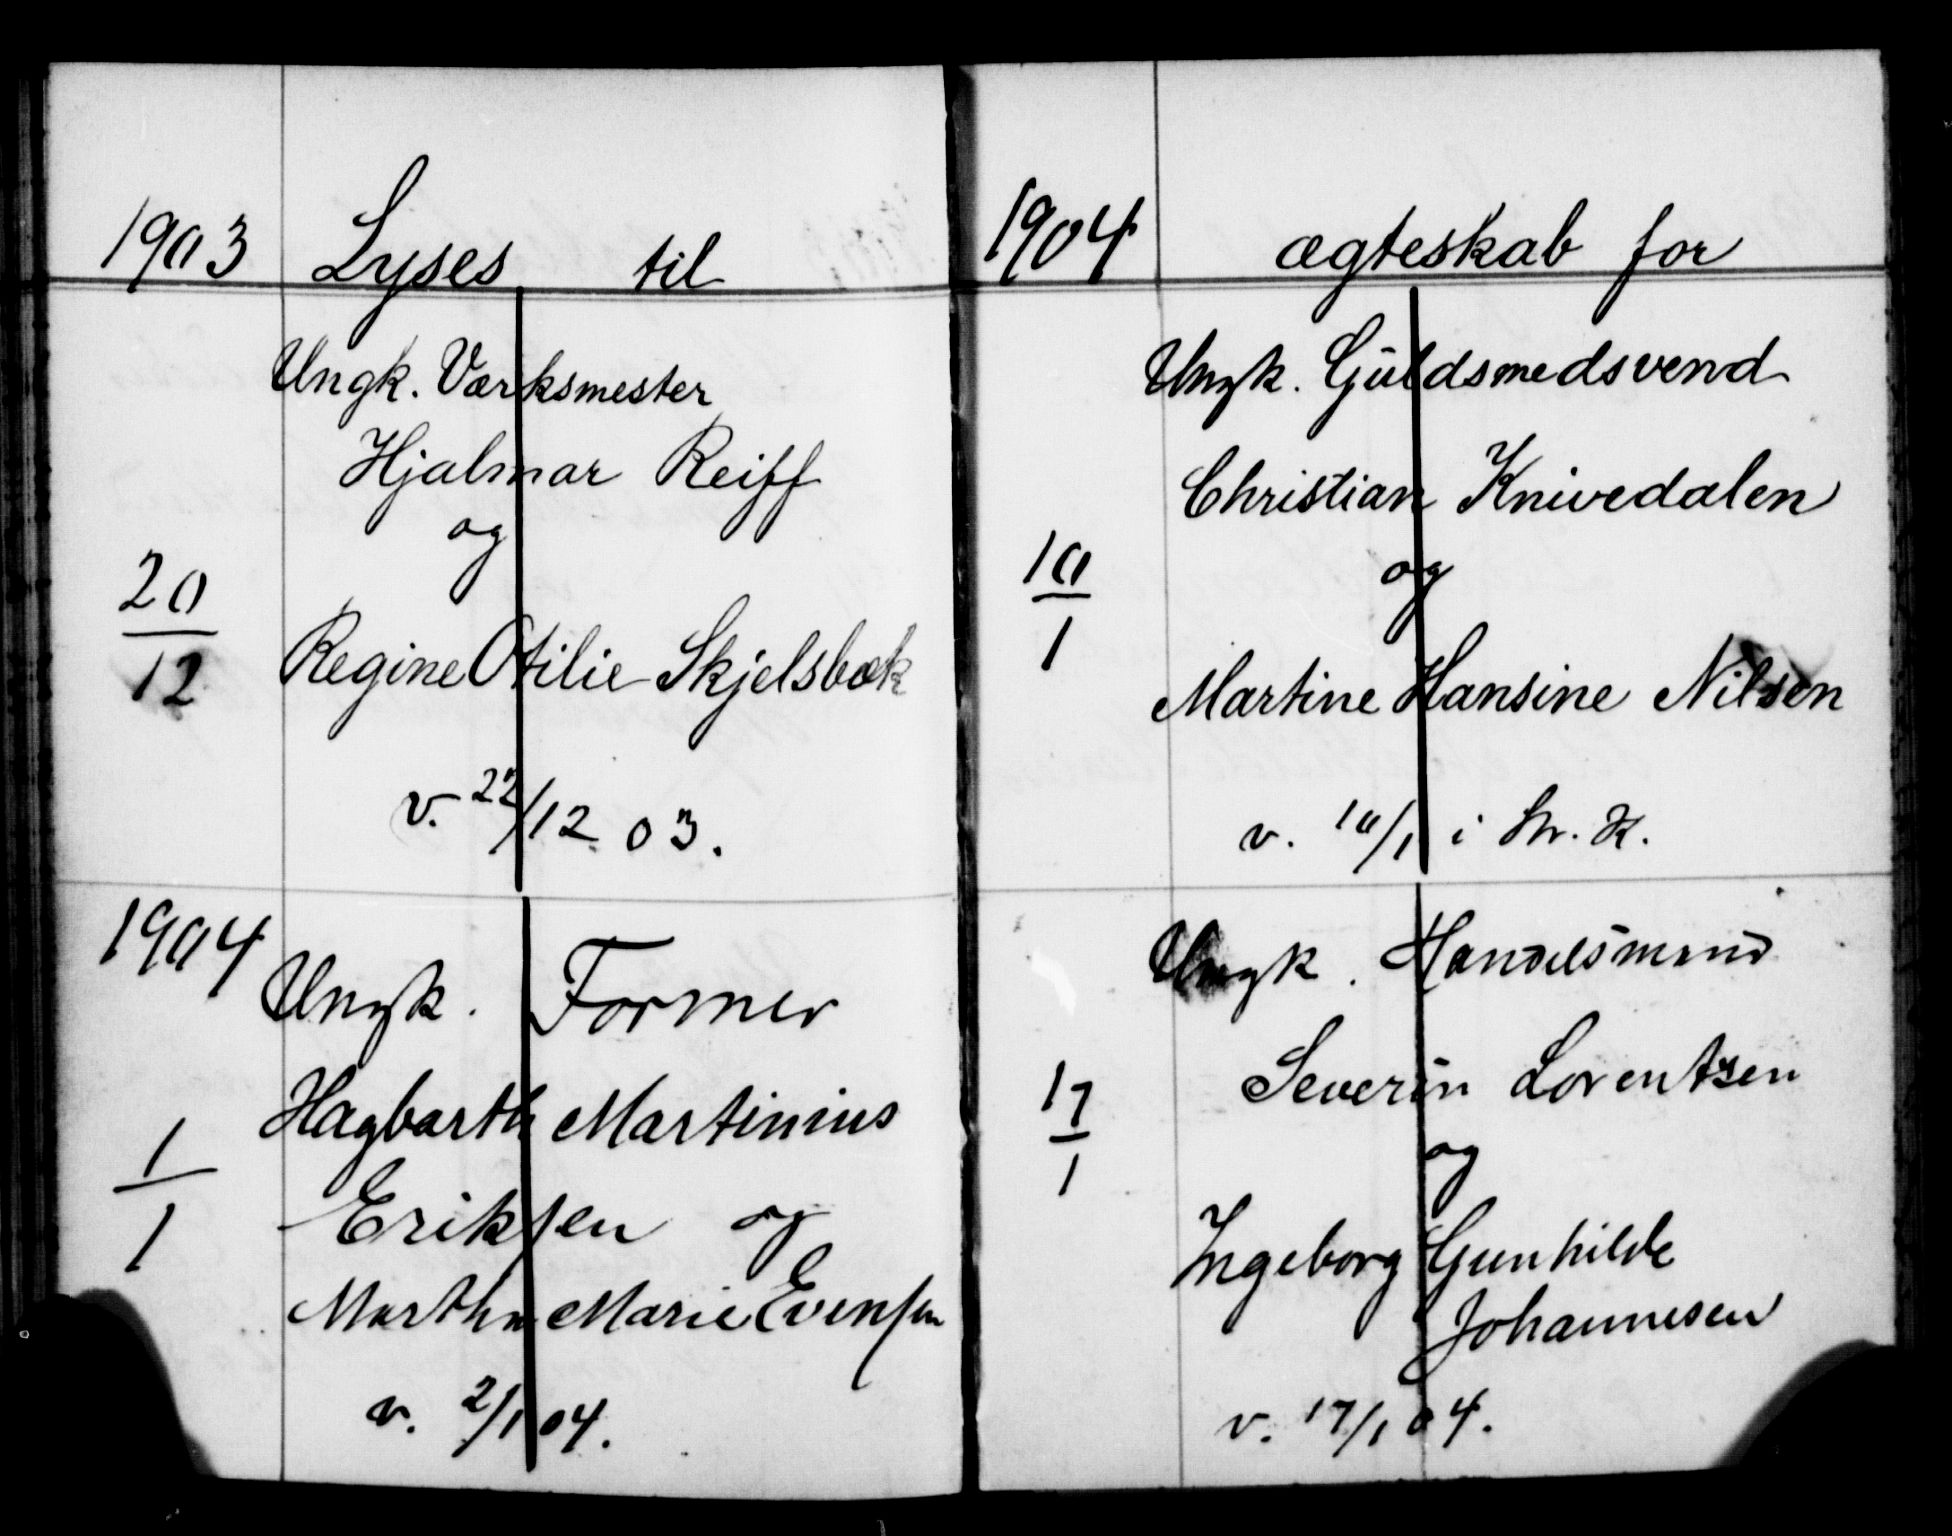 1903 Lyses til
Ungk. Værksmester
Hjalmar Reiff
og
20/12
Regine Otilie Skjelsbæk
v. 22/12 03.
1904
Ungk. Former
Hagbarth Martinius
1/1
Eriksen og
Martha Marie Evensen
v. 2/1 04.
1904 ægteskab for
Ungk. Guldsmedsvend
Christian Knivedalen
10/1
og
Martine Hansine Nilsen
v. 10/1 i Str. K.
Ungk. Handelsmand
Severin Lorentzen
17/1
og
Ingeborg Gunhilde
Johannesen
v. 17/1 04.